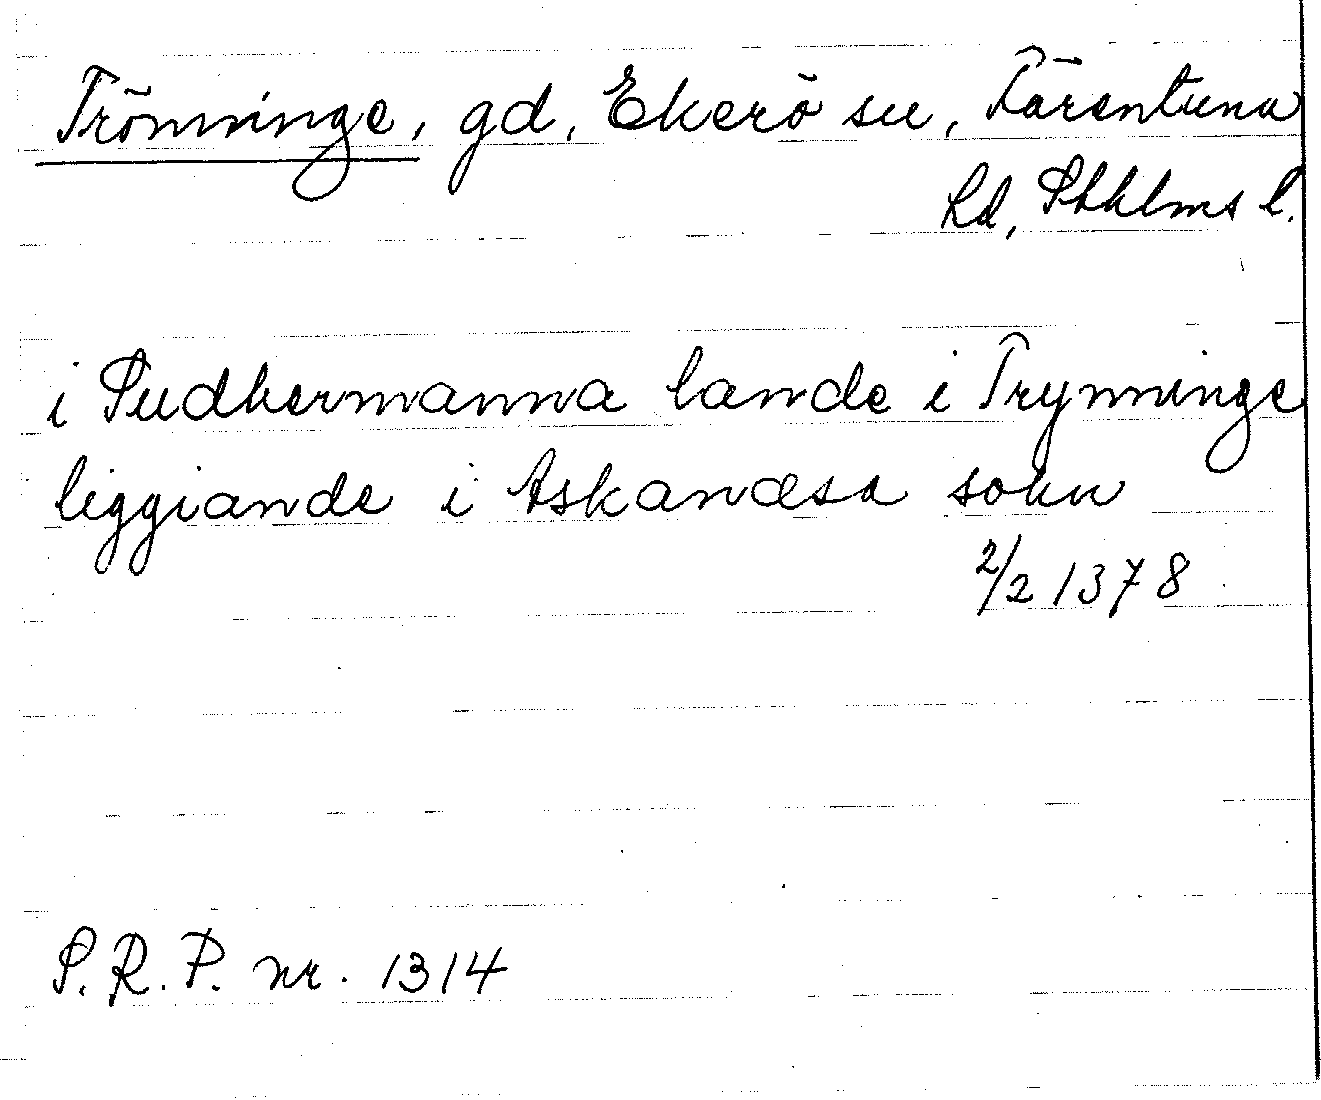 Trönninge, gd, Ekerö sn, Färentuna
hd, Sthlms l.
i Sudhermanna lande i Trynninge
liggiande i Askanæsa sokn
2/2 1378
S.R.P. nr. 1314